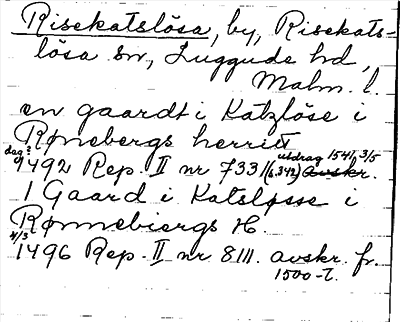 Risekatslösa, by, Risekats-
lösa sn, Luggude hd,
Malm. l.
en gaardt i Katzløse i
Rønebergs herrit
1492 Rep. II nr 7331 (s. 342) utdrag 1541 3/5 avskr.
1 Gaard i Katsløsse i
Rønnebiergs H.
4/3 1496 Rep. II nr 8111. avskr. fr.
1500-t.